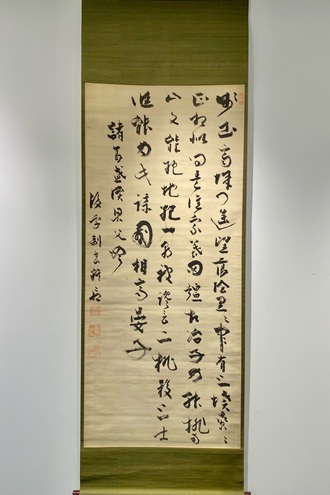 步出齊城門遙望蕩陰里々中有三墳累々
正相似問是誰家墓田疆古冶子力能排南
山文能絕地紀一朝被讒言二桃殺三士
誰能為此謀國相齊晏子
諸葛武侯梁父吟
後學劉